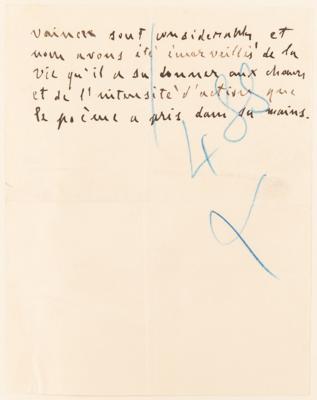 vaincre sont considérables et
nous avons été émerveillés de la
vie qu'il a su donner aux chœurs
et de l'intensité d'action que
le poème a pris dans ses mains.
488